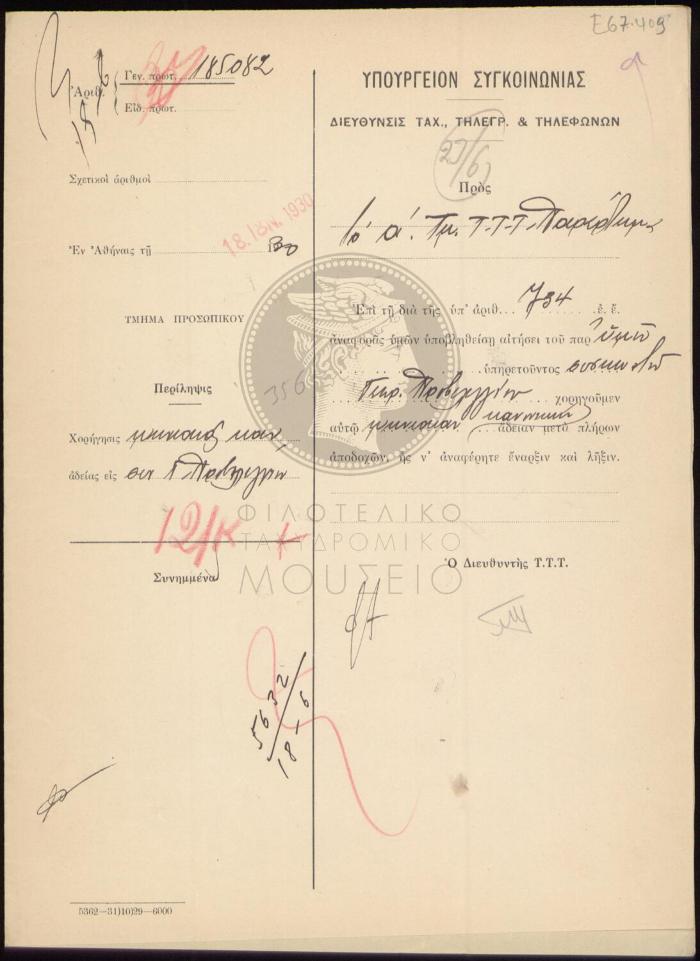 Ε67.409
Ἀριθ.
Γεν. πρωτ. 185082
Εἰδ. πρωτ.
Σχετικοὶ ἀριθμοὶ
18. ΙΟΥΝ. 1930
Ἐν Ἀθήναις τῇ
ΤΜΗΜΑ ΠΡΟΣΩΠΙΚΟΥ
Περίληψις
Χορήγησις
ἀδείας εἰς
12/κ κ
Συνημμένα
5632
18-6
5362—31)10)29—6000
ΥΠΟΥΡΓΕΙΟΝ ΣΥΓΚΟΙΝΩΝΙΑΣ
ΔΙΕΥΘΥΝΣΙΣ ΤΑΧ., ΤΗΛΕΓΡ. & ΤΗΛΕΦΩΝΩΝ
23/6
Πρὸς
Τμ. Τ.Τ.Τ.
Ἐπὶ τῇ διὰ τῆς ὑπ' ἀριθ. 734 ἐ. ἔ.
ἀναφορᾶς ὑμῶν ὑποβληθείσῃ αἰτήσει τοῦ παρ' ὑμῖν
ὑπηρετοῦντος
χορηγοῦμεν
αὐτῷ μηνιαίαν κανονικὴν ἄδειαν μετὰ πλήρων
ἀποδοχῶν, ἧς ν' ἀναφέρητε ἔναρξιν καὶ λῆξιν.
356
ΦΙΛΟΤΕΛΙΚΟ
ΤΑΧΥΔΡΟΜΙΚΟ
ΜΟΥΣΕΙΟ
Ὁ Διευθυντὴς Τ.Τ.Τ.